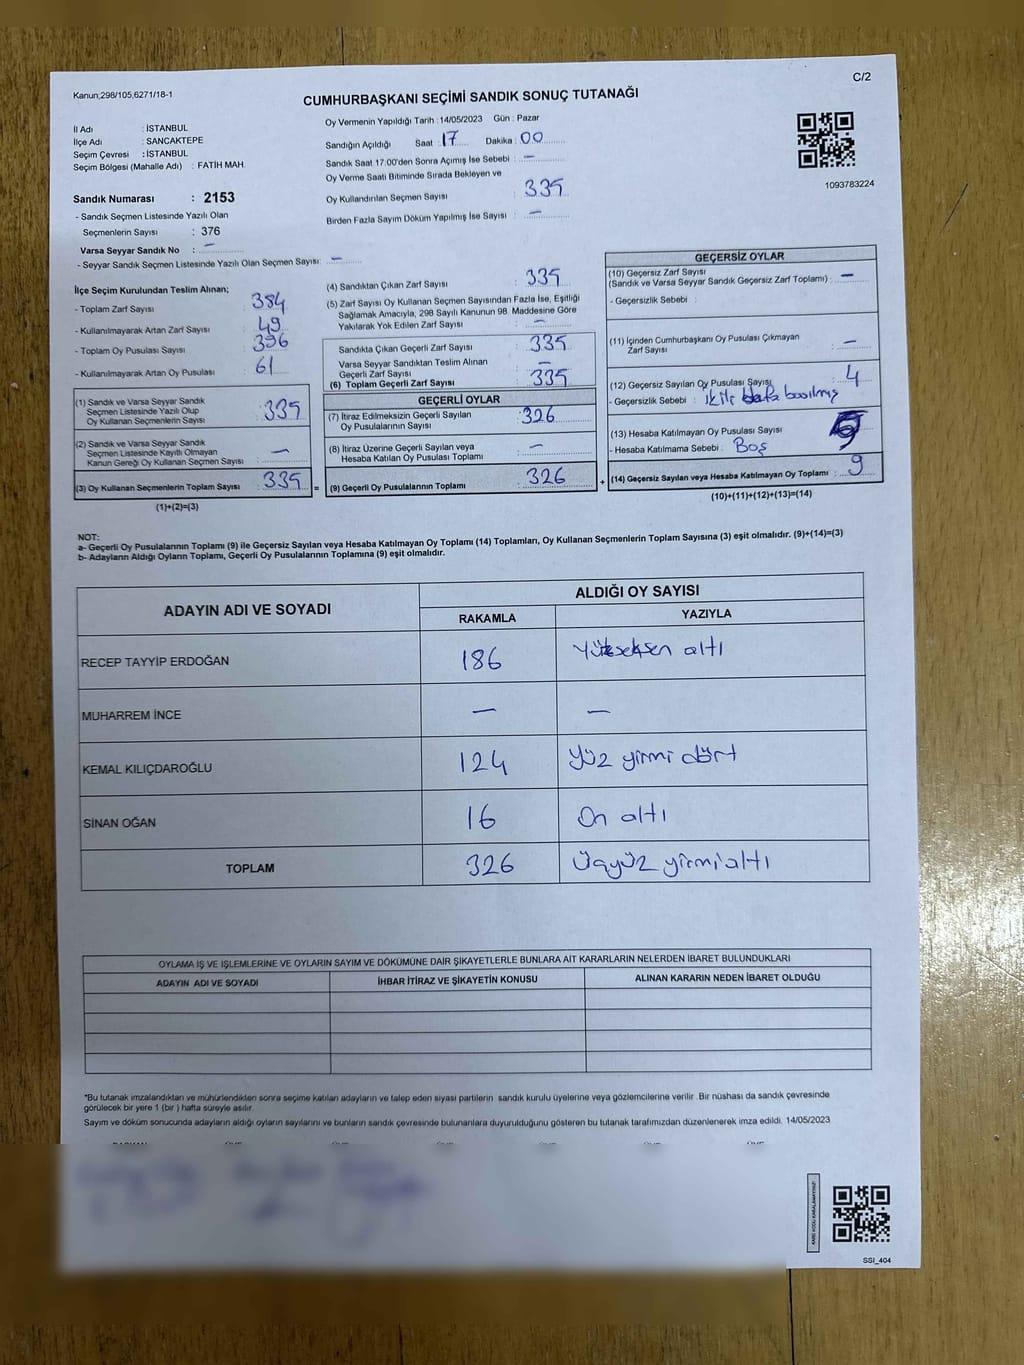 C/2
Kanun;298/105,6271/18-1
CUMHURBAŞKANI SEÇİMİ SANDIK SONUÇ TUTANAĞI
İl Adı : İSTANBUL
İlçe Adı : SANCAKTEPE
Seçim Çevresi : İSTANBUL
Seçim Bölgesi (Mahalle Adı) : FATİH MAH.
Sandık Numarası : 2153
- Sandık Seçmen Listesinde Yazılı Olan
Seçmenlerin Sayısı : 376
Varsa Seyyar Sandık No : —
- Seyyar Sandık Seçmen Listesinde Yazılı Olan Seçmen Sayısı: —
Oy Vermenin Yapıldığı Tarih : 14/05/2023 Gün : Pazar
Sandığın Açıldığı Saat : 17 Dakika : 00
Sandık Saat 17:00'den Sonra Açımış İse Sebebi : —
Oy Verme Saati Bitiminde Sırada Bekleyen ve
Oy Kullandırılan Seçmen Sayısı : 335
Birden Fazla Sayım Döküm Yapılmış İse Sayısı : —
1093783224
İlçe Seçim Kurulundan Teslim Alınan;
- Toplam Zarf Sayısı : 384
- Kullanılmayarak Artan Zarf Sayısı : 49
- Toplam Oy Pusulası Sayısı : 396
- Kullanılmayarak Artan Oy Pusulası : 61
(1) Sandık ve Varsa Seyyar Sandık
Seçmen Listesinde Yazılı Olup
Oy Kullanan Seçmenlerin Sayısı : 335
(2) Sandık ve Varsa Seyyar Sandık
Seçmen Listesinde Kayıtlı Olmayan
Kanun Gereği Oy Kullanan Seçmen Sayısı : —
(3) Oy Kullanan Seçmenlerin Toplam Sayısı : 335
(1)+(2)=(3)
=
(4) Sandıktan Çıkan Zarf Sayısı : 335
(5) Zarf Sayısı Oy Kullanan Seçmen Sayısından Fazla İse, Eşitliği
Sağlamak Amacıyla, 298 Sayılı Kanunun 98. Maddesine Göre
Yakılarak Yok Edilen Zarf Sayısı : —
Sandıkta Çıkan Geçerli Zarf Sayısı : 335
Varsa Seyyar Sandıktan Teslim Alınan
Geçerli Zarf Sayısı : —
(6) Toplam Geçerli Zarf Sayısı : 335
GEÇERLİ OYLAR
(7) İtiraz Edilmeksizin Geçerli Sayılan
Oy Pusulalarının Sayısı : 326
(8) İtiraz Üzerine Geçerli Sayılan veya
Hesaba Katılan Oy Pusulası Toplamı : —
(9) Geçerli Oy Pusulalarının Toplamı : 326
+
GEÇERSİZ OYLAR
(10) Geçersiz Zarf Sayısı
(Sandık ve Varsa Seyyar Sandık Geçersiz Zarf Toplamı) : —
- Geçersizlik Sebebi :
(11) İçinden Cumhurbaşkanı Oy Pusulası Çıkmayan
Zarf Sayısı : —
(12) Geçersiz Sayılan Oy Pusulası Sayısı : 4
- Geçersizlik Sebebi : basılmış
(13) Hesaba Katılmayan Oy Pusulası Sayısı : 5
- Hesaba Katılmama Sebebi : Boş
(14) Geçersiz Sayılan veya Hesaba Katılmayan Oy Toplamı : 9
(10)+(11)+(12)+(13)=(14)
NOT:
a- Geçerli Oy Pusulalarının Toplamı (9) ile Geçersiz Sayılan veya Hesaba Katılmayan Oy Toplamı (14) Toplamları, Oy Kullanan Seçmenlerin Toplam Sayısına (3) eşit olmalıdır. (9)+(14)=(3)
b- Adayların Aldığı Oyların Toplamı, Geçerli Oy Pusulalarının Toplamına (9) eşit olmalıdır.
ADAYIN ADI VE SOYADI ALDIĞI OY SAYISI
RAKAMLA YAZIYLA
RECEP TAYYİP ERDOĞAN 186 Yüzseksen altı
MUHARREM İNCE — —
KEMAL KILIÇDAROĞLU 124 Yüz yirmi dört
SİNAN OĞAN 16 On altı
TOPLAM 326 Üçyüz yirmialtı
OYLAMA İŞ VE İŞLEMLERİNE VE OYLARIN SAYIM VE DÖKÜMÜNE DAİR ŞİKAYETLERLE BUNLARA AİT KARARLARIN NELERDEN İBARET BULUNDUKLARI
ADAYIN ADI VE SOYADI İHBAR İTİRAZ VE ŞİKAYETİN KONUSU ALINAN KARARIN NEDEN İBARET OLDUĞU
*Bu tutanak imzalandıktan ve mühürlendikten sonra seçime katılan adayların ve talep eden siyasi partilerin sandık kurulu üyelerine veya gözlemcilerine verilir. Bir nüshası da sandık çevresinde
görülecek bir yere 1 (bir ) hafta süreyle asılır.
Sayım ve döküm sonucunda adayların aldığı oyların sayılarını ve bunların sandık çevresinde bulunanlara duyurulduğunu gösteren bu tutanak tarafımızdan düzenlenerek imza edildi. 14/05/2023
SSI_404